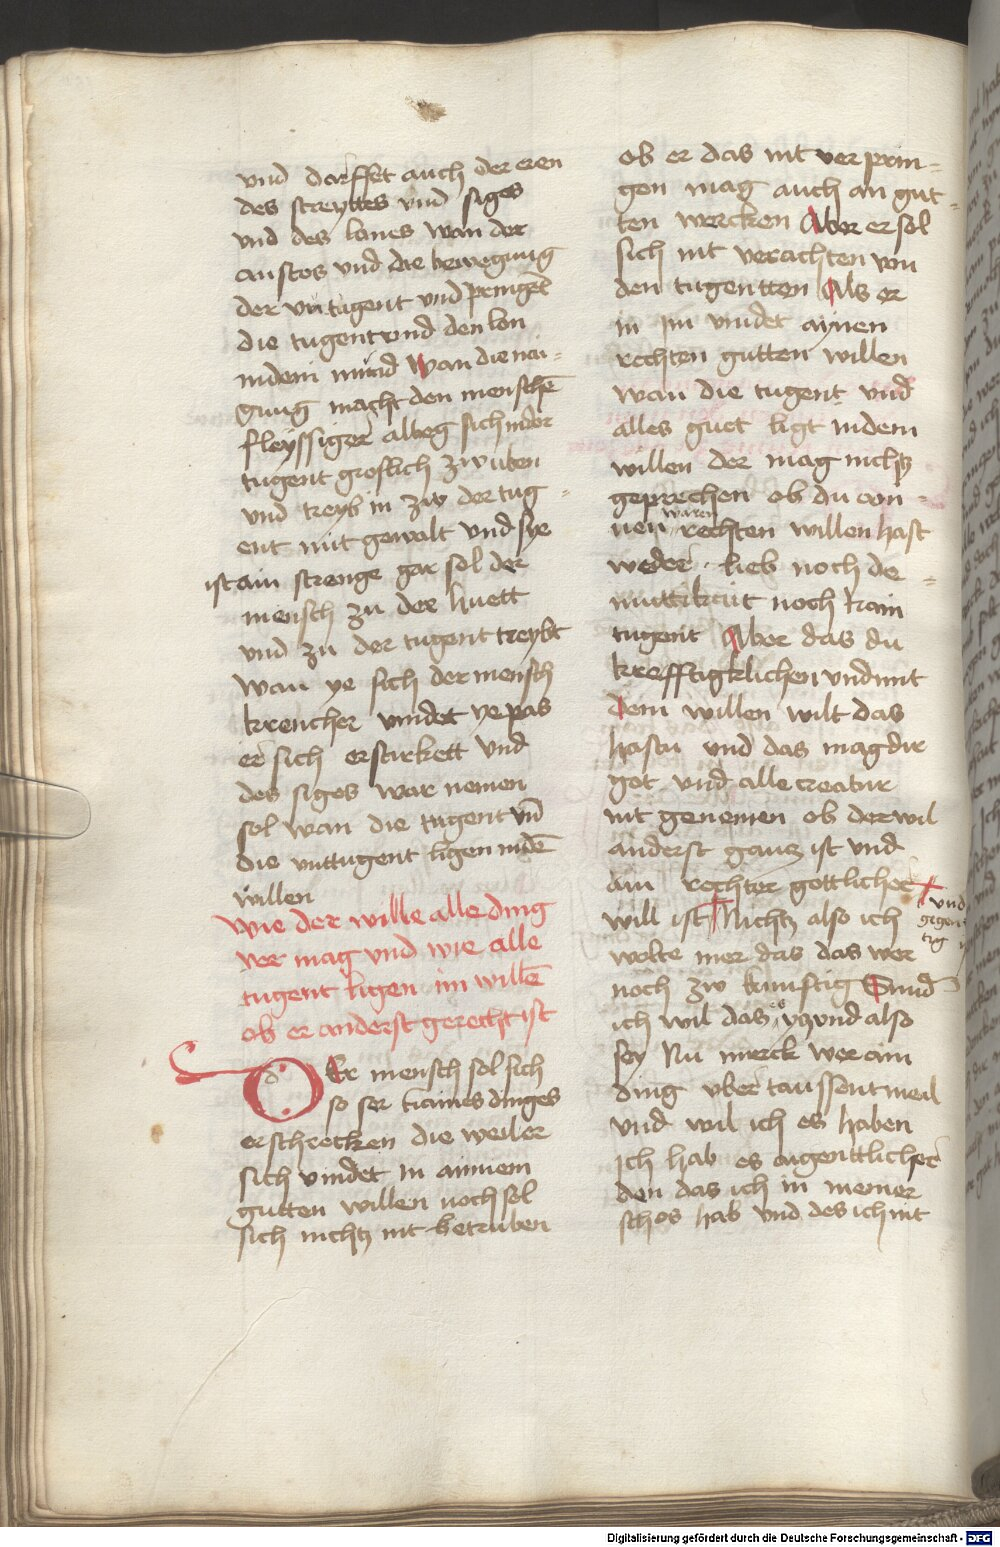 vnd dorffet auch der eren
des streyttes vnd siges
vnd des lones wan der
anstos vnd die bewegung
der vntugent vnd pringet
die tugent vnd den lon
in dem mund Wan die nai-
gung macht den mensche
fleyssiger alweg sich in der
tugent groslich zw üben
vnd treyb in zw der tug-
ent mit gewalt vnd sye
ist ain strenge gar sol der
mensch zu der huett
vnd zu der tugent treybt
Wan ye sich der mensch
krencher vindet ye pas
er sich ersterkett vnd
des siges war nemen
sol wan die tugent vn
die vnttugent ligen in de
willen
Wie der wille alle ding
ver mag vnd wie alle
tugent ligen im wille
ob er anderst gerecht ist
DEr mensch sol sich
so ser kaines dinges
erschrecken die weil er
sich vindet in ainnem
gutten willen noch sol
sich nichtz nit betruben
ob er das nit ver prin-
gen mag auch an gut-
ten wercken Aber er sol
sich nit verachten von
den tugentten Als er
in im vindet aynen
rechten gutten willen
wan die tugent vnd
alles guet ligt in dem
willen der mag nichtz
geprechen ob du ain-
nen waren rechten willen hast
weder lieb noch de-
muttikait noch kain
tugent Aber das du
krefftigklichen vnd mit
dem willen wilt das
hastu vnd das mag dir
got vnd alle creatur
nit genemen ob der wil
anderst gancz ist vnd
ain rechter gottlicher
will ist Nichtz also ich
wolte mer das das wer
noch zw kunfftig Sund
ich wil das es yczund also
sey Nu merck wer ain
ding vber taussent meil
vnd wil ich es haben
ich hab es aigenttlicher
den das ich in meiner
schos hab vnd des ich nit
vnd
gegen
tig
Digitalisierung gefördert durch die Deutsche Forschungsgemeinschaft - DFG